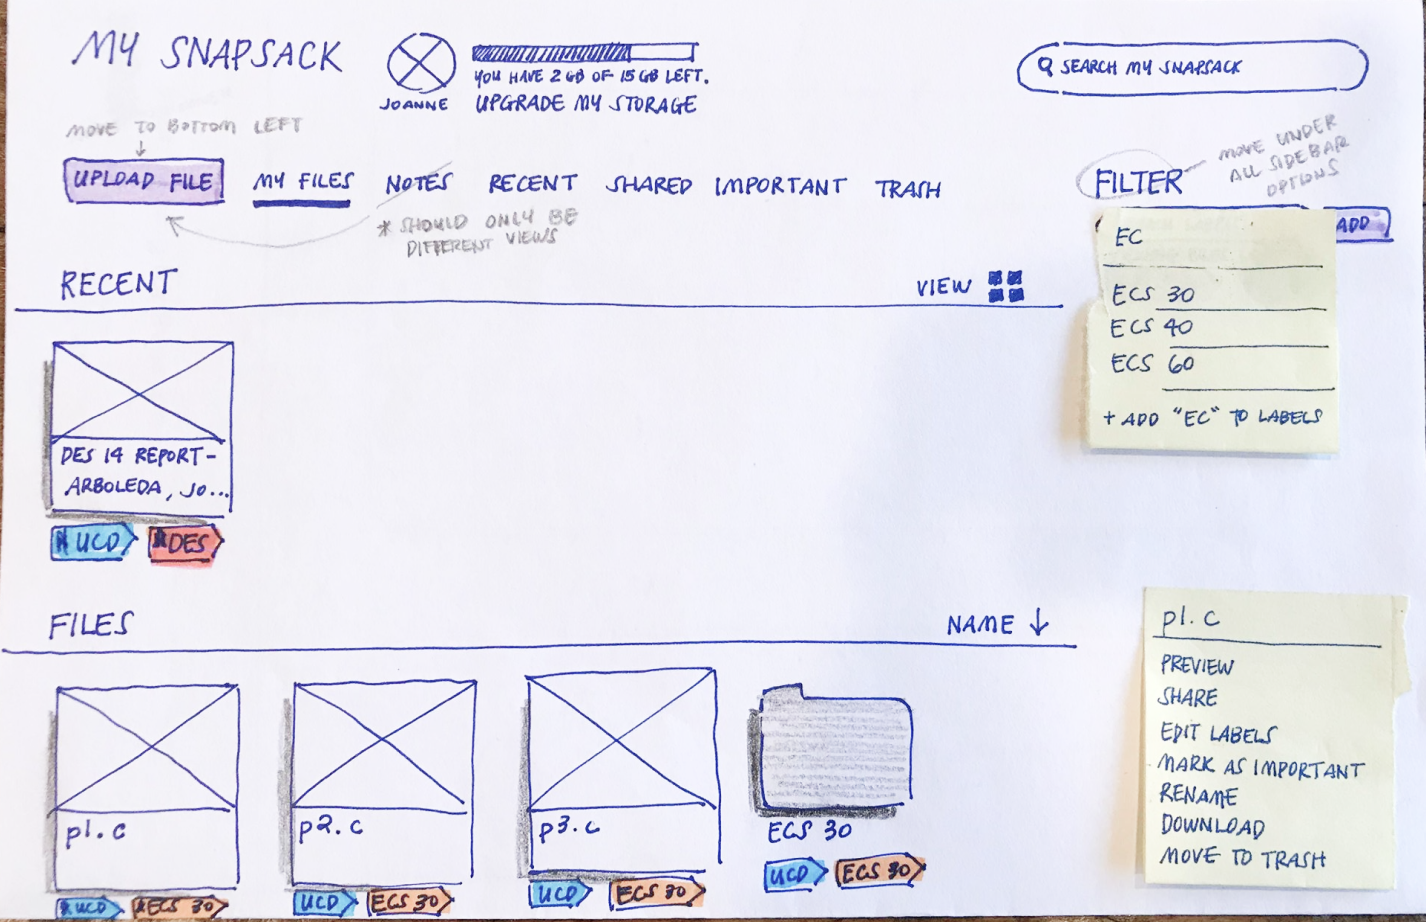 MY SNAPSACK
JOANNE
YOU HAVE 2 GB OF 15 GB LEFT.
UPGRADE MY STORAGE
SEARCH MY SNAPSACK
MOVE TO BOTTOM LEFT
UPLOAD FILE
MY FILES
NOTES
RECENT
SHARED
IMPORTANT
TRASH
* SHOULD ONLY BE
DIFFERENT VIEWS
FILTER
MOVE UNDER
ALL SIDEBAR
OPTIONS
ADD
EC
ECS 30
ECS 40
ECS 60
+ ADD "EC" TO LABELS
RECENT
VIEW
DES 14 REPORT-
ARBOLEDA, JO...
UCD
DES
FILES
NAME ↓
p1.c
UCD
ECS 30
p2.c
UCD
ECS 30
p3.c
UCD
ECS 30
ECS 30
UCD
ECS 30
p1.c
PREVIEW
SHARE
EDIT LABELS
MARK AS IMPORTANT
RENAME
DOWNLOAD
MOVE TO TRASH